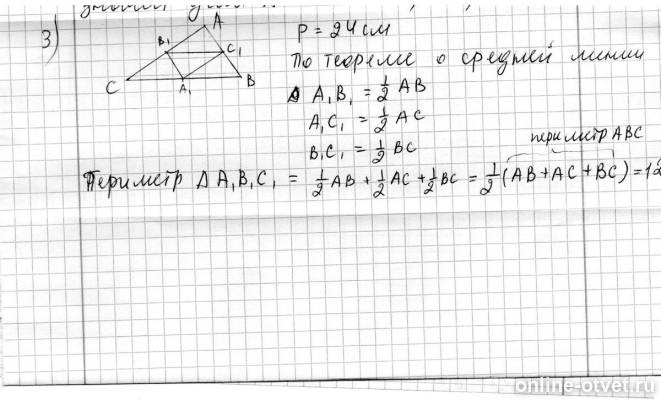 3)
A
B₁
C₁
C
A₁
B
P = 24 см
По теореме о средней линии
Δ A₁B₁ = 1/2 AB
A₁C₁ = 1/2 AC
B₁C₁ = 1/2 BC
периметр ABC
Периметр Δ A₁B₁C₁ = 1/2 AB + 1/2 AC + 1/2 BC = 1/2 (AB + AC + BC) = 12
online-otvet.ru